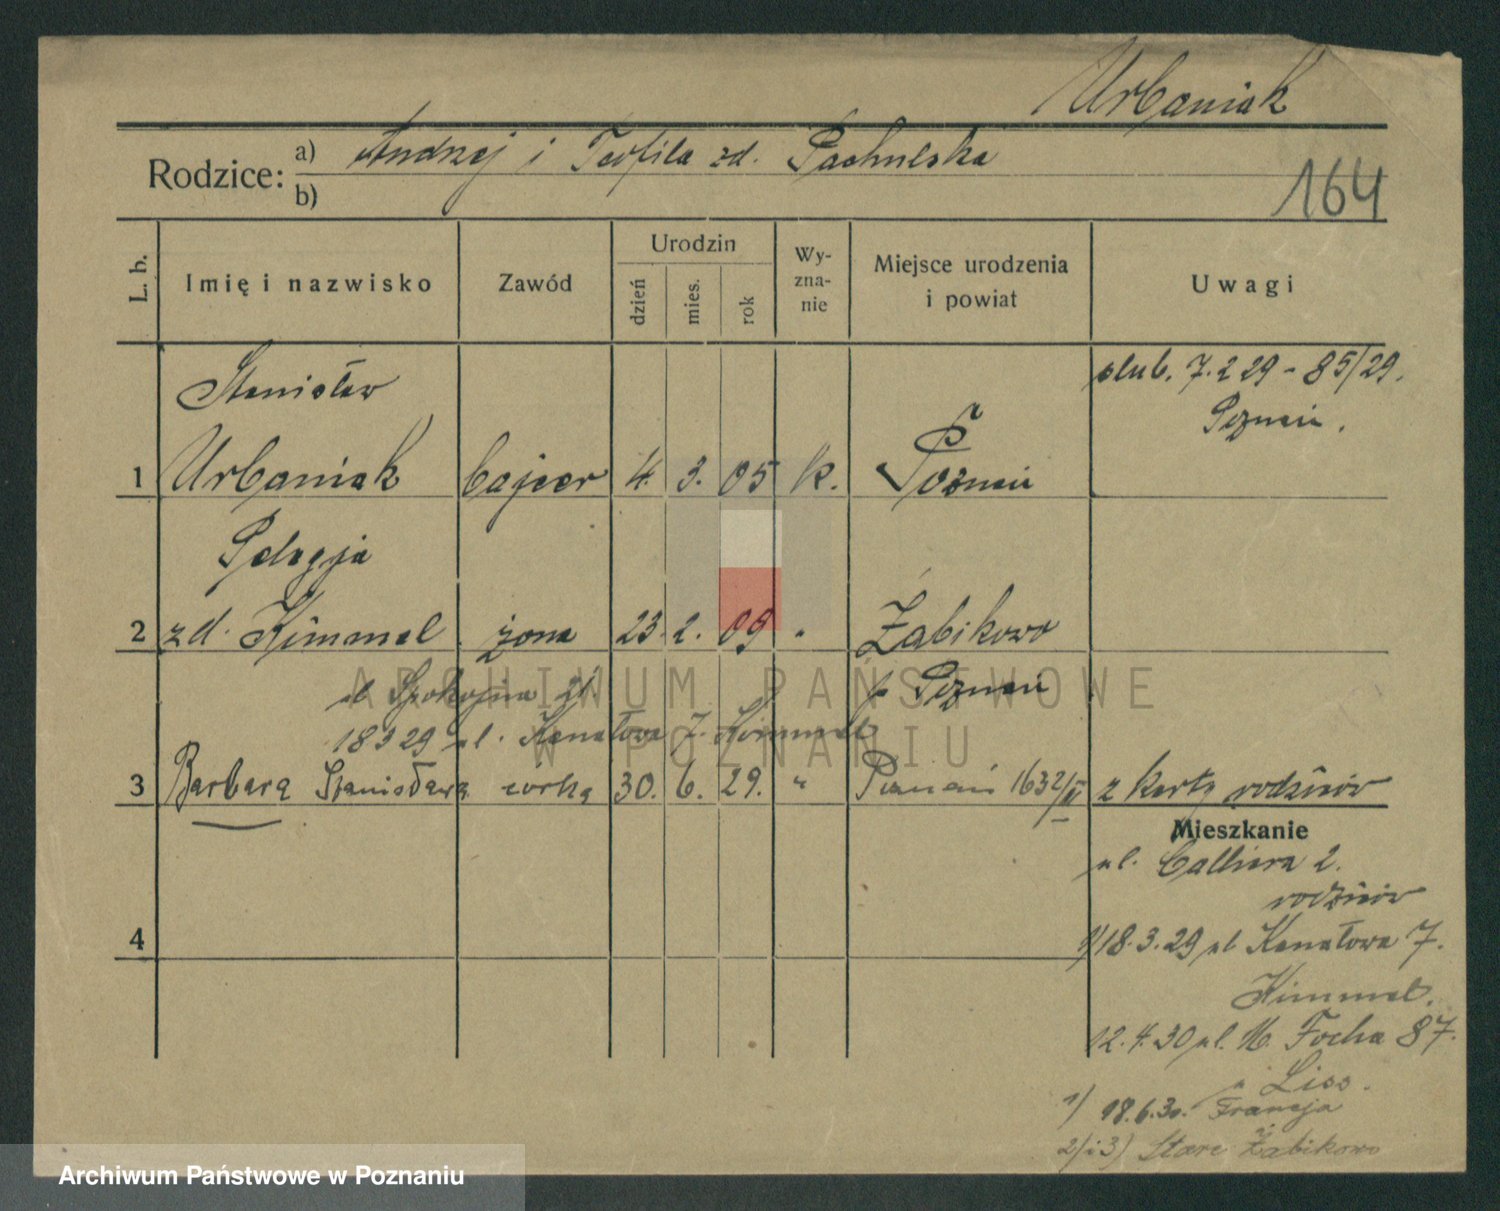 Urbaniak
Rodzice:
a) Andrzej i Teofila zd. Pachulska
b)
164
L. b.
Imię i nazwisko
Zawód
Urodzin
dzień
mies.
rok
Wy-
zna-
nie
Miejsce urodzenia
i powiat
Uwagi
Stanisław
ślub. 7.2 29 - 85/29.
Poznań.
1 Urbaniak bajcer 4. 3. 05 k. Poznań
Pelagja
2 zd. Kimmel żona 23. 2. 09 " Żabikowo
p Poznań
ul Spokojna 21.
18 3 29 ul. Kanałowa 7. Kimmel
3 Barbara Stanisława córka 30. 6. 29. " Poznań 1632/II z karty rodziców
Mieszkanie
ul. Calliera 2.
rodziców
1) 18.3.29 ul Kanałowa 7.
Kimmel.
4
12.4.30 ul. M. Focha 87.
u Liss.
1) 18.6.30. Francja
2) i 3) Stare Żabikowo
ARCHIWUM PAŃSTWOWE
W POZNANIU
Archiwum Państwowe w Poznaniu